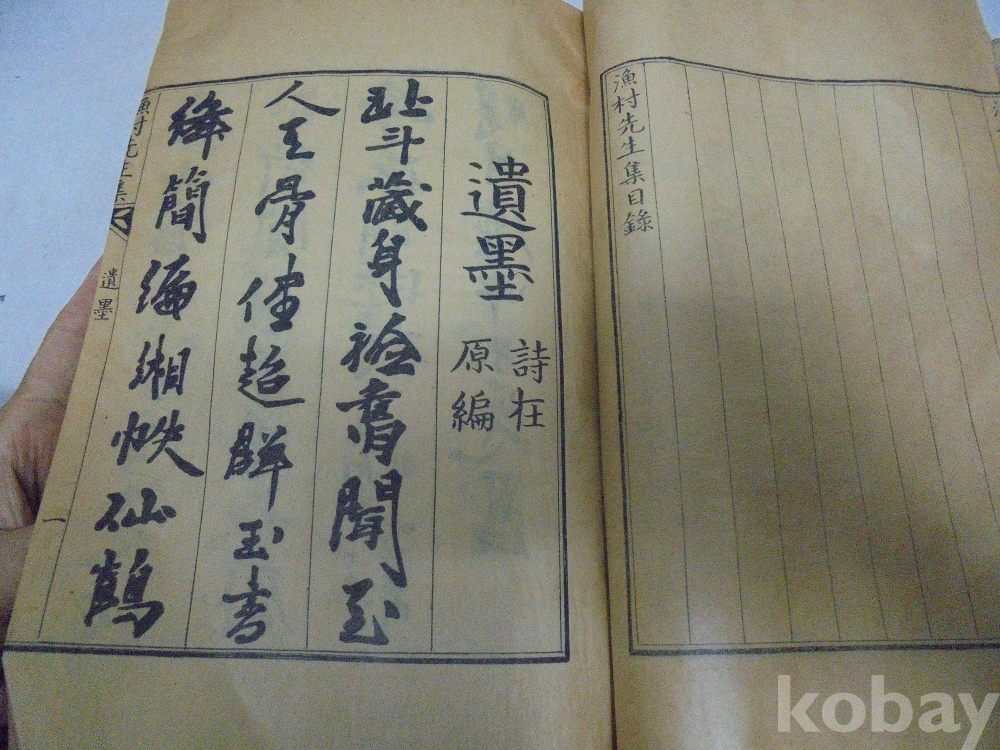 漁村先生集目錄
遺墨
詩在
原編
北斗藏身舊聞至
人天骨健超群玉書
絳簡編緗帙仙鶴
漁村先生集
遺墨
一
kobay